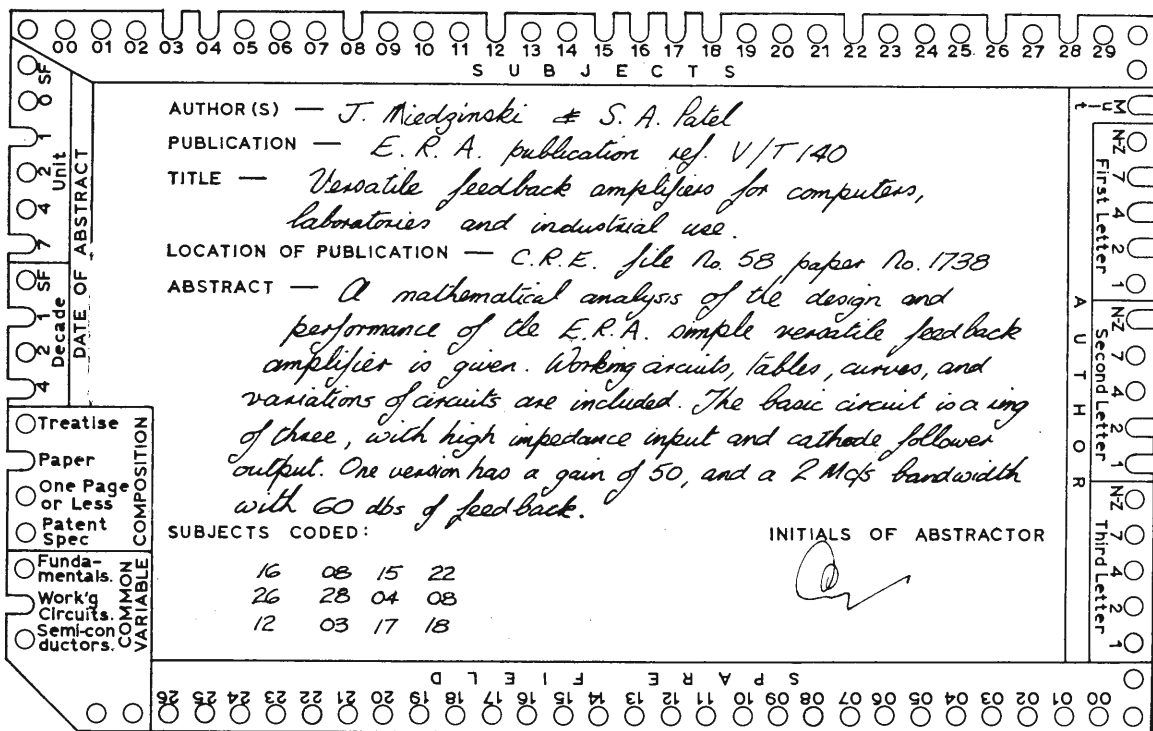 00 01 02 03 04 05 06 07 08 09 10 11 12 13 14 15 16 17 18 19 20 21 22 23 24 25 26 27 28 29
SUBJECTS
SF
0
1
2
4
7
Unit
SF
1
2
4
Decade
DATE OF ABSTRACT
AUTHOR(S) — J. Miedzinski & S. A. Patel
PUBLICATION — E.R.A. publication ref. V/T 140
TITLE — Versatile feedback amplifiers for computers,
laboratories and industrial use.
LOCATION OF PUBLICATION — C.R.E. file No. 58 paper No. 1738
ABSTRACT — A mathematical analysis of the design and
performance of the E.R.A. simple versatile feedback
amplifier is given. Working circuits, tables, curves, and
variations of circuits are included. The basic circuit is a ring
of three, with high impedance input and cathode follower
output. One version has a gain of 50, and a 2 Mc/s bandwidth
with 60 dbs of feedback.
SUBJECTS CODED:
16 08 15 22
26 28 04 08
12 03 17 18
INITIALS OF ABSTRACTOR
Treatise
Paper
One Page
or Less
Patent
Spec
COMPOSITION
Funda-
mentals.
Work'g
Circuits.
Semi-con
ductors.
COMMON
VARIABLE
Mul-
t
N-Z
7
4
2
1
First Letter
N-Z
7
4
2
1
Second Letter
N-Z
7
4
2
1
Third Letter
AUTHOR
SPARE FIELD
00 01 02 03 04 05 06 07 08 09 10 11 12 13 14 15 16 17 18 19 20 21 22 23 24 25 26